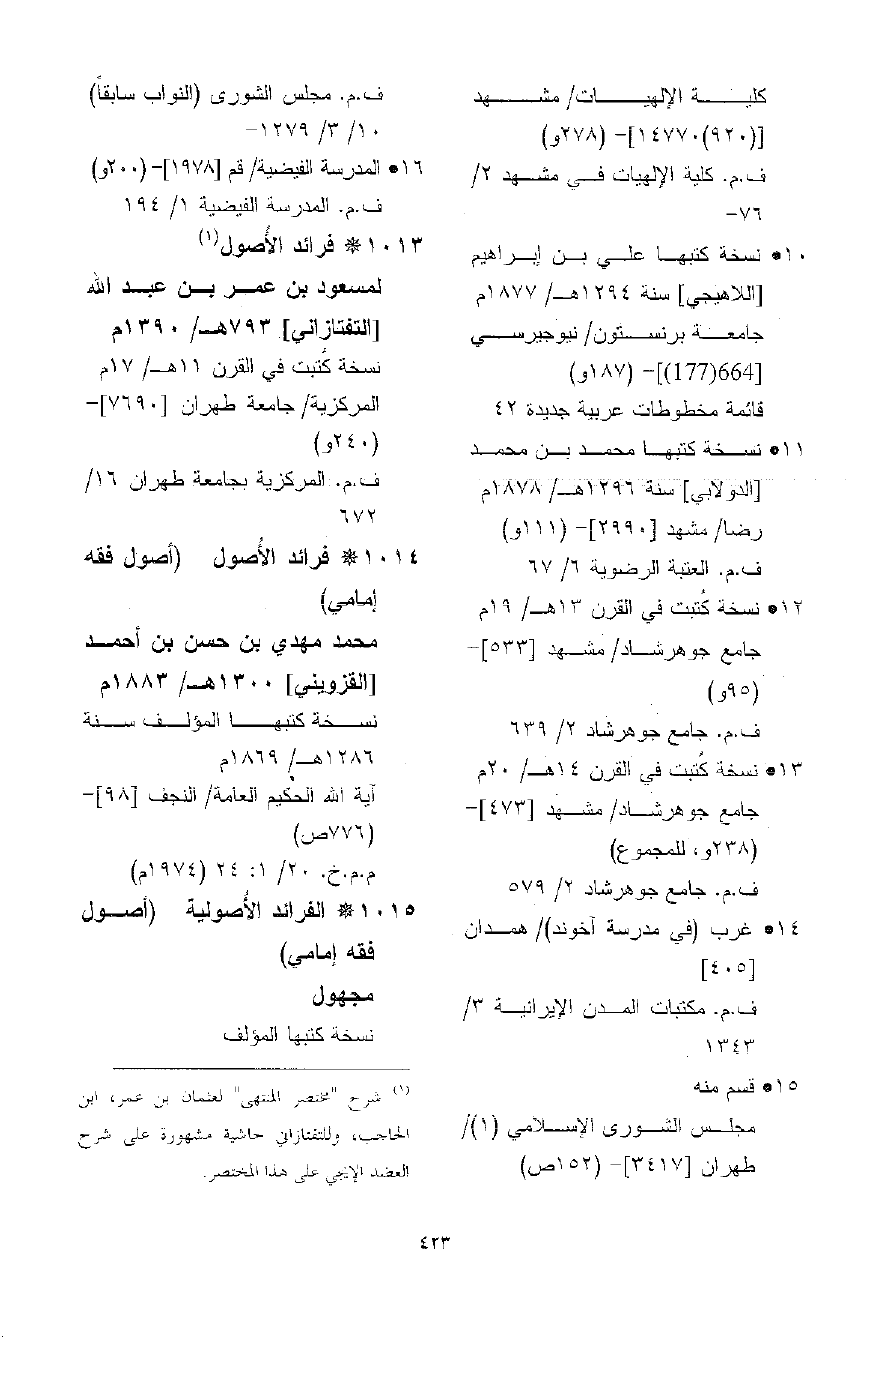 كلية الإلهيات/ مشهد
[(٩٢٠)١٤٧٧٠]- (٢٧٨و)
ف.م. كلية الإلهيات في مشهد ٢/
٧٦-
١٠* نسخة كتبها علي بن إبراهيم
[اللاهيجي] سنة ١٢٩٤هـ/ ١٨٧٧م
جامعة برنستون/ نيوجيرسي
[664(177)]- (١٨٧و)
قائمة مخطوطات عربية جديدة ٤٢
١١* نسخة كتبها محمد بن محمد
[الدولابي] سنة ١٢٩٦هـ/ ١٨٧٨م
رضا/ مشهد [٢٩٩٠]- (١١١و)
ف.م. العتبة الرضوية ٦/ ٦٧
١٢* نسخة كُتبت في القرن ١٣هـ/ ١٩م
جامع جوهرشاد/ مشهد [٥٣٣]-
(٩٥و)
ف.م. جامع جوهرشاد ٢/ ٦٣٩
١٣* نسخة كُتبت في القرن ١٤هـ/ ٢٠م
جامع جوهرشاد/ مشهد [٤٧٣]-
(٢٣٨و، للمجموع)
ف.م. جامع جوهرشاد ٢/ ٥٧٩
١٤* غرب (في مدرسة آخوند)/ همدان
[٤٠٥]
ف.م. مكتبات المدن الإيرانية ٣/
١٣٤٣
١٥* قسم منه
مجلس الشورى الإسلامي (١)/
طهران [٣٤١٧]- (١٥٢ص)
ف.م. مجلس الشورى (النواب سابقاً)
١٠/ ٣/ ١٢٧٩-
١٦* المدرسة الفيضية/ قم [١٩٧٨]- (٢٠٠و)
ف.م. المدرسة الفيضية ١/ ١٩٤
١٠١٣* فرائد الأصول(١)
لمسعود بن عمر بن عبد الله
[التفتازاني] ٧٩٣هـ/ ١٣٩٠م
نسخة كُتبت في القرن ١١هـ/ ١٧م
المركزية/ جامعة طهران [٧٦٩٠]-
(٢٤٠و)
ف.م. المركزية بجامعة طهران ١٦/
٦٧٢
١٠١٤* فرائد الأصول (أصول فقه
إمامي)
محمد مهدي بن حسن بن أحمد
[القزويني] ١٣٠٠هـ/ ١٨٨٣م
نسخة كتبها المؤلف سنة
١٢٨٦هـ/ ١٨٦٩م
آية الله الحكيم العامة/ النجف [٩٨]-
(٧٧٦ص)
م.م.خ. ٢٠/ ١: ٢٤ (١٩٧٤م)
١٠١٥* الفرائد الأصولية (أصول
فقه إمامي)
مجهول
نسخة كتبها المؤلف
(١) شرح "مختصر المنتهى" لعثمان بن عمر، ابن
الحاجب، وللتفتازاني حاشية مشهورة على شرح
العضد الإيجي على هذا المختصر.
٤٢٣